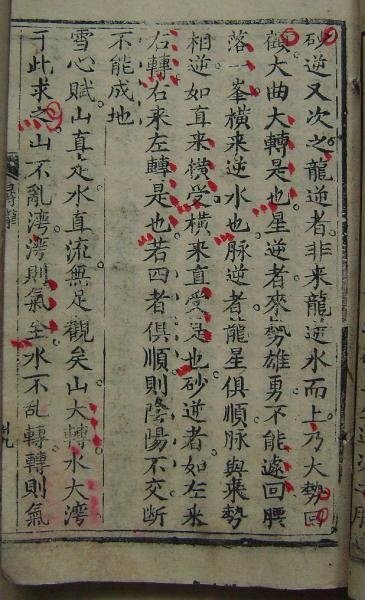 砂逆又次之龍逆者非来龍逆水而上乃大勢回
顧大曲大轉是也星逆者來勢雄勇不能遽回腰
落一峯橫来逆水也脉逆者龍星俱順脉與来勢
相逆如直来橫受橫来直受是也砂逆者如左来
右轉右来左轉是也若四者俱順則陰陽不交断
不能成地
雪心賦山直走水直流無足觀矣山大轉水大湾
于此求之山不亂湾湾則氣全水不乱轉轉則氣
尋龍